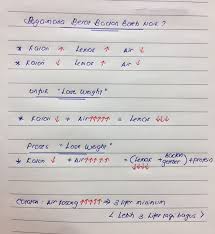 Bagaimana Berat Badan Boleh Naik?
* Kalori ↑ Lemak ↑ Air ↓
* Kalori ↓ Lemak ↑ Air ↓
Untuk "Lose Weight"
* Kalori ↓ + Air ↑↑↑↑↑ = Lemak ↓↓↓
Proses "Lose Weight"
* Kalori ↓ + Air ↑↑↑↑↑ = (Lemak ↓↓↓↓ + ) + protein
Air Kosong ↑↑↑↑↑ → 3 liter minimum
< Lebih 3 liter lagi bagus >